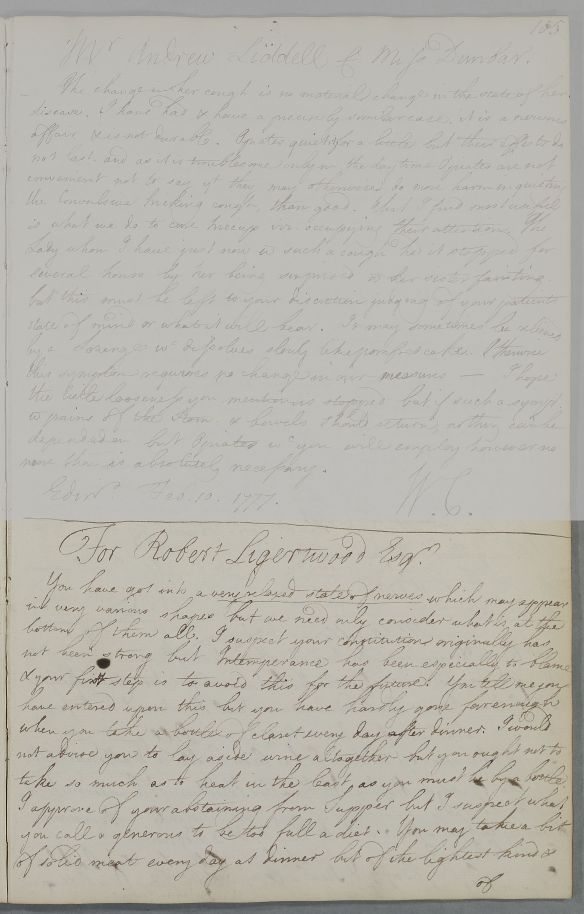 165
Mr Andrew Liddell & Miss Dunbar.
The change in her cough is no material change in the state of her
disease. I have had & have a precisely similar case. it is a nervous
affair & is not durable. Opiates quiet it for a little but their effects do
not last. and as it is troublesome only in the day time Opiates are not
convenient not to say yt they may otherwise do more harm in quieting
the Convulsive hicking cough, than good. What I find most useful
is what we do to cure hiccup viz. occupying their attention. The
Lady whom I have just now in such a cough had it stopped for
several hours by her being surprised wt her sister fainting.
but this must be left to your discretion judging of your patients
state of mind or what it will bear. It may sometimes be relieved
by a Lozenge wc dissolves slowly like pomfret cakes. Otherwise
this symptom requires no change in our measures — I hope
the little looseness you mention is stopped but if such a sympt.
or pains of the Stom. & bowels should return, as they can be
depended on but Opiates wc you will employ however no
more than is absolutely necessary.
Edinr. Feb. 10. 1777. W. C.
For Robert Ligertwood Esqr.
You have got into a very relaxed state of nerves which may appear
in very various shapes but we need only consider what is at the
bottom of them all. I suspect your constitution originally has
not been strong but Intemperance has been especially to blame
& your first step is to avoid this for the future. You tell me you
have entered upon this but you have hardly gone far enough
when you take a bottle of claret every day after dinner. I would
not advise you to lay aside wine altogether but you ought not to
take so much as to heat in the least, as you must be by a bottle.
I approve of your abstaining from Supper but I suspect what
you call a generous to be too full a diet. You may take a bit
of solid meat every day at dinner but of the lightest kind &
of